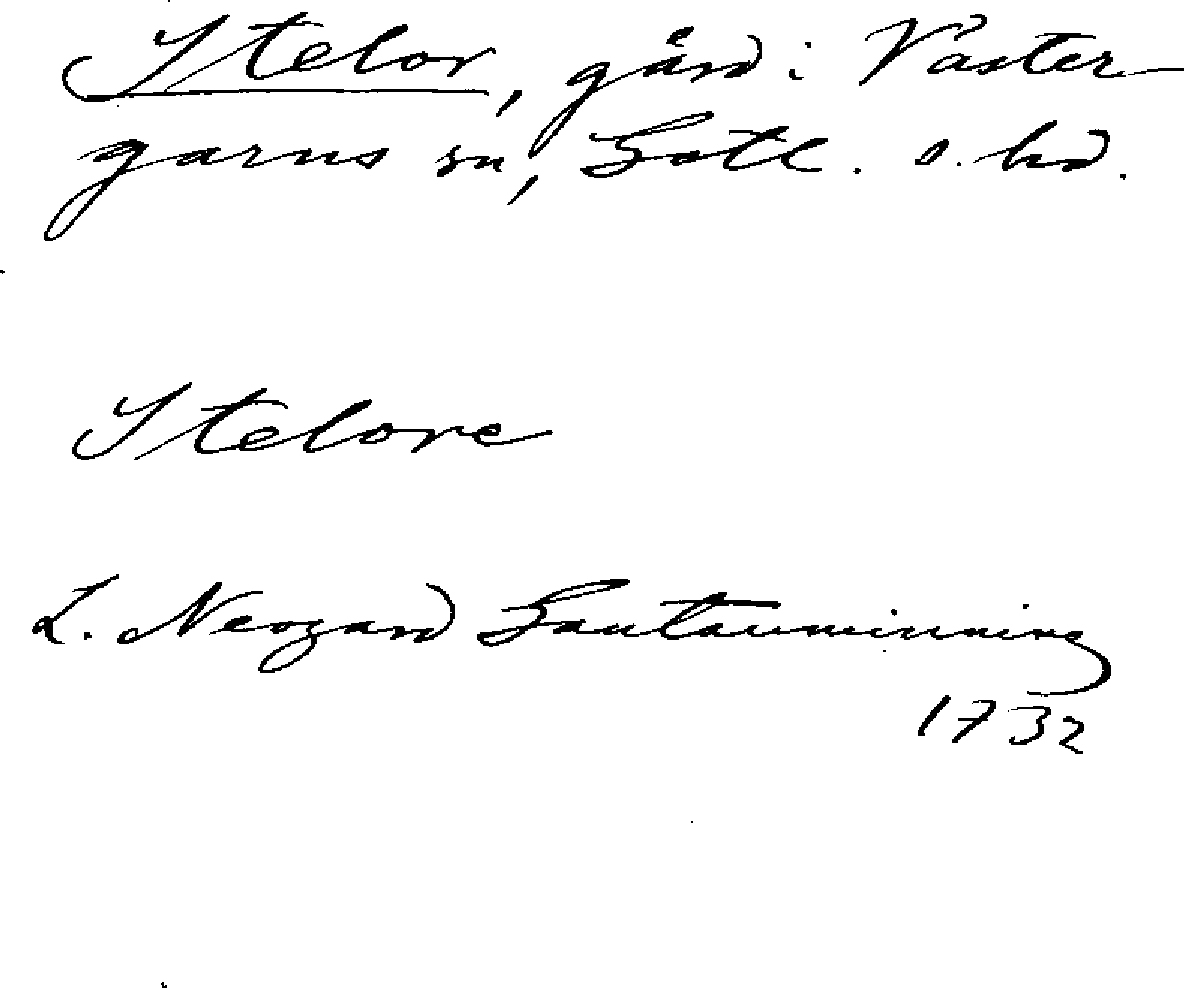 Stelor, gård i Väster-
garns sn, Gotl. s. hd.
Stelore
L. Neogard Gautauminning
1732